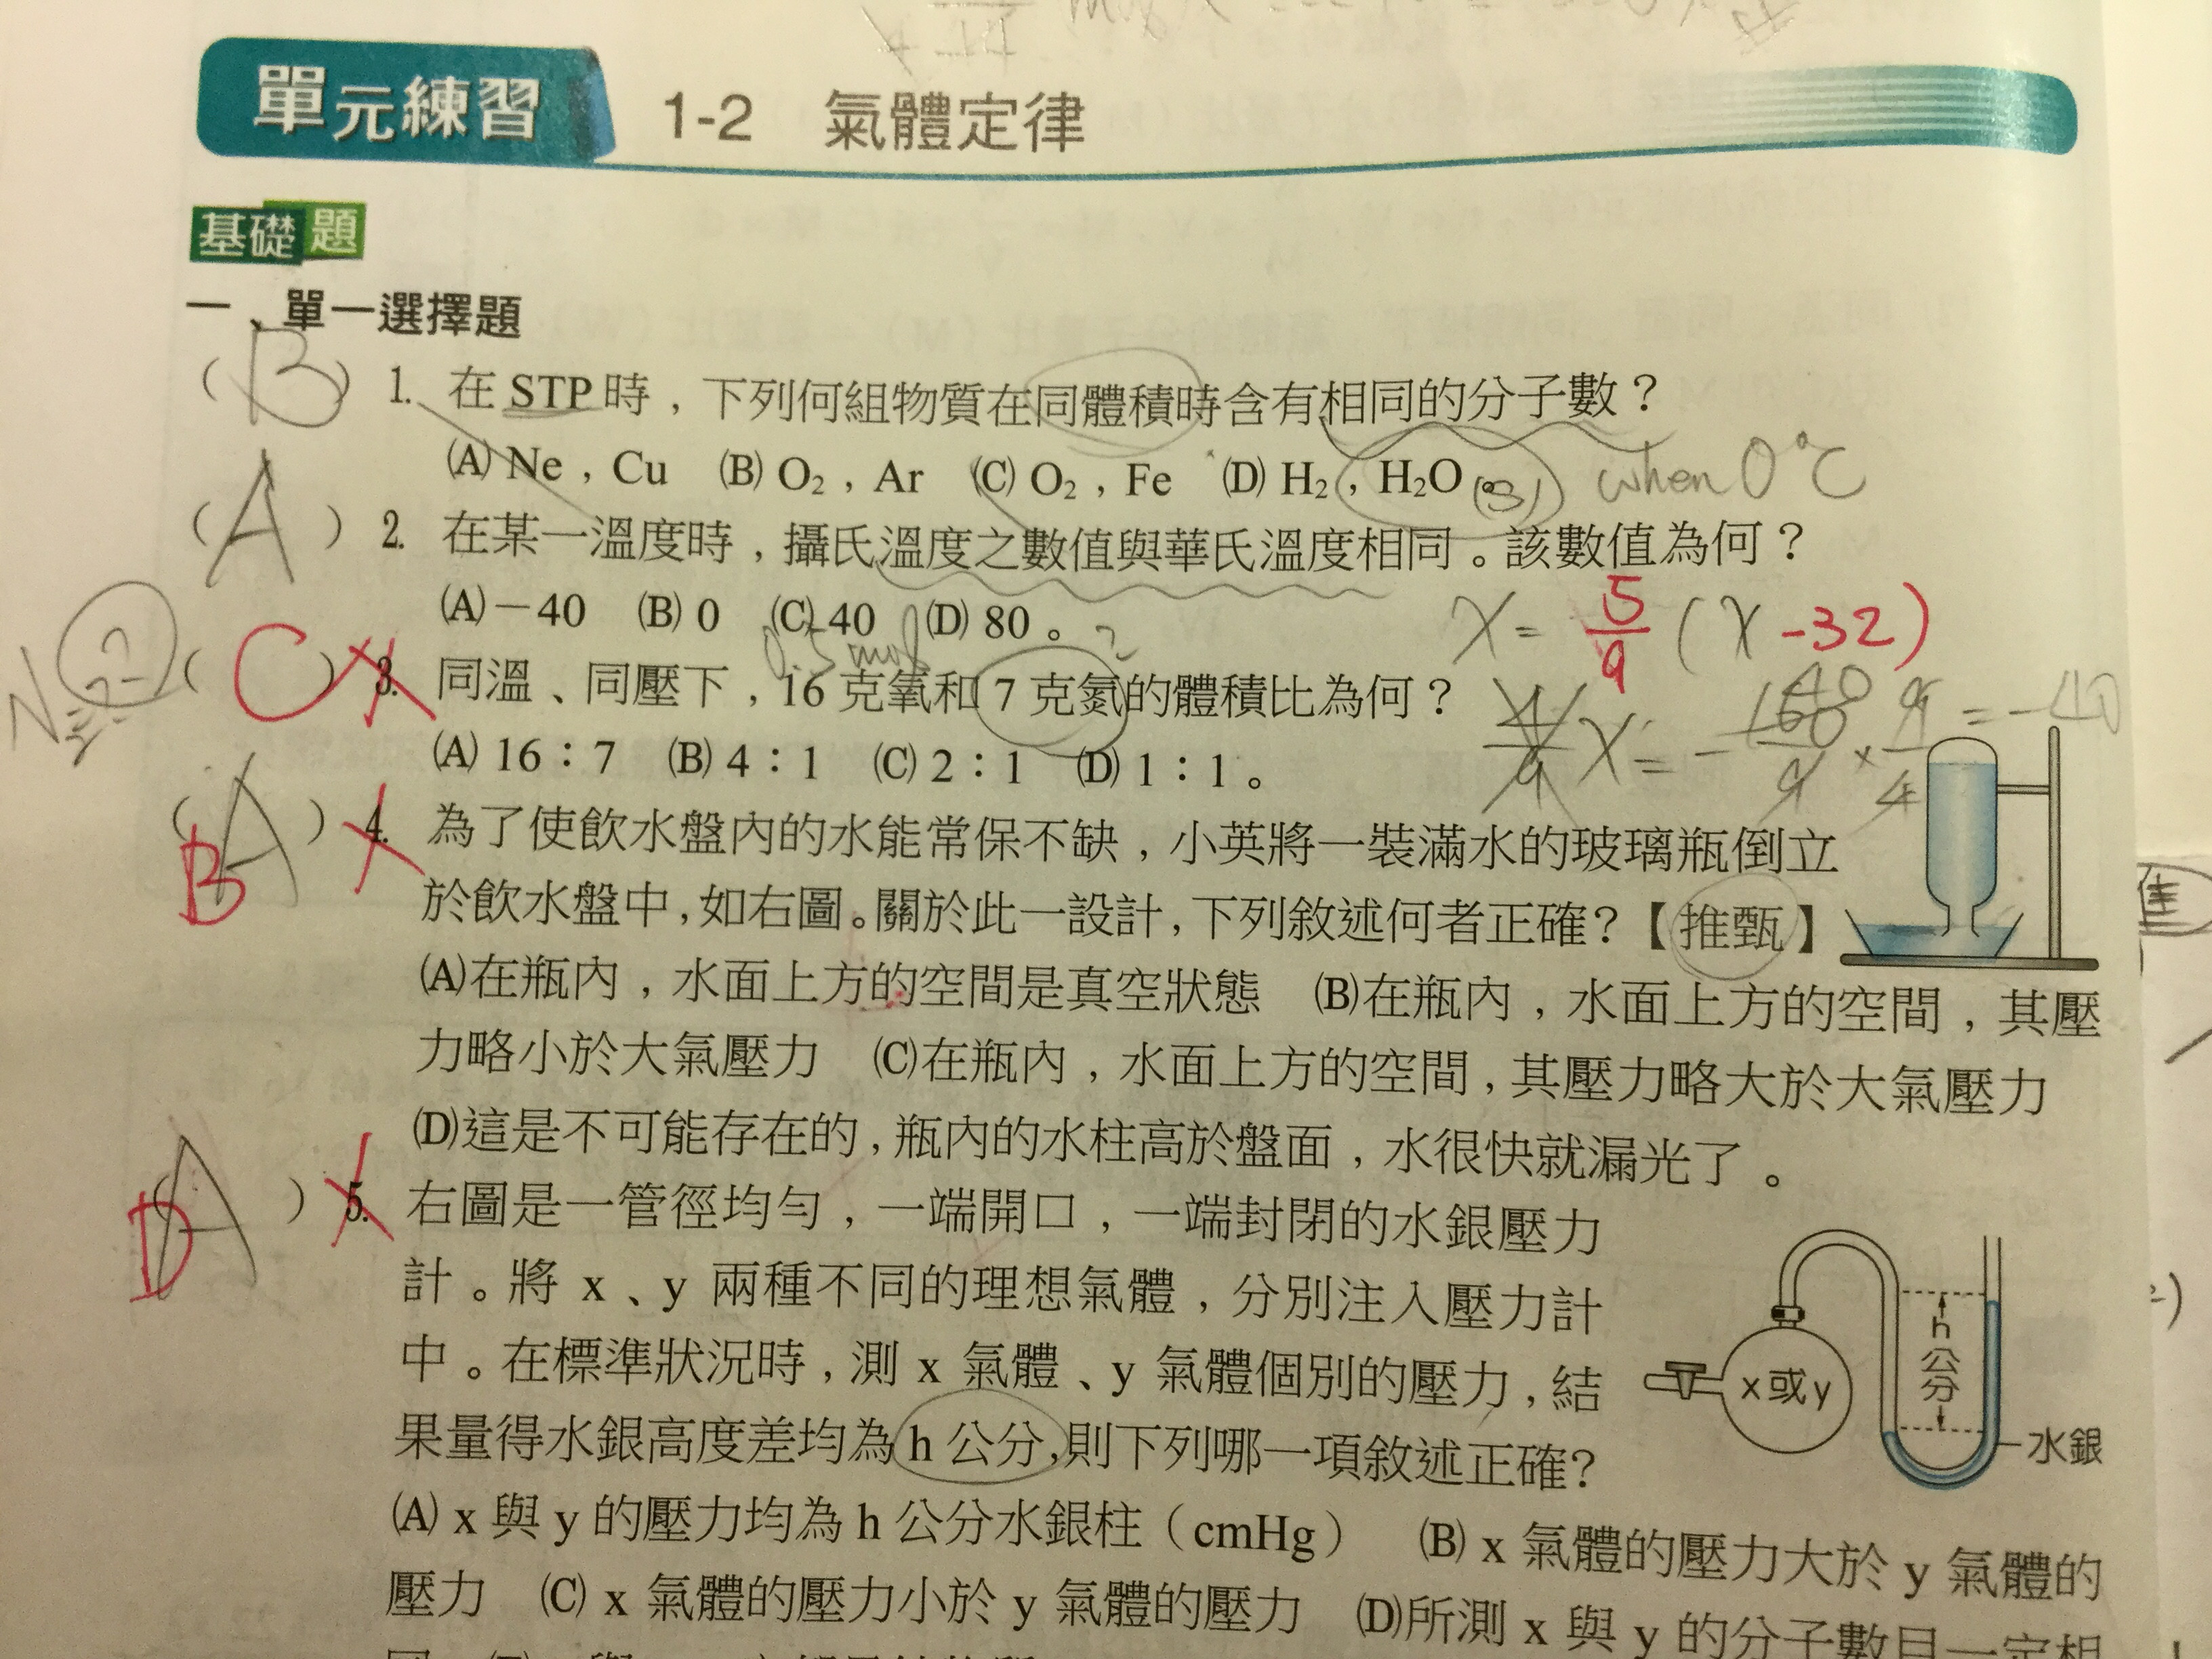 單元練習 1-2 氣體定律
基礎題
一、單一選擇題
(B) 1. 在 STP 時，下列何組物質在同體積時含有相同的分子數？
(A) Ne，Cu (B) O₂，Ar (C) O₂，Fe (D) H₂，H₂O。(s) when 0°C
(A) 2. 在某一溫度時，攝氏溫度之數值與華氏溫度相同。該數值為何？
(A) －40 (B) 0 (C) 40 (D) 80。
x = 5/9 (x -32)
0.5 mol
N₂ = ?
(C) 3. 同溫、同壓下，16 克氧和 7 克氮的體積比為何？
4/9 x = - 160/9 × 9/4 = -40
40
(A) 16：7 (B) 4：1 (C) 2：1 (D) 1：1。
(A) B 4. 為了使飲水盤內的水能常保不缺，小英將一裝滿水的玻璃瓶倒立
於飲水盤中，如右圖。關於此一設計，下列敘述何者正確？【推甄】
(A)在瓶內，水面上方的空間是真空狀態 (B)在瓶內，水面上方的空間，其壓
力略小於大氣壓力 (C)在瓶內，水面上方的空間，其壓力略大於大氣壓力
(D)這是不可能存在的，瓶內的水柱高於盤面，水很快就漏光了。
(A) D 5. 右圖是一管徑均勻，一端開口，一端封閉的水銀壓力
計。將 x、y 兩種不同的理想氣體，分別注入壓力計
中。在標準狀況時，測 x 氣體、y 氣體個別的壓力，結
果量得水銀高度差均為 h 公分，則下列哪一項敘述正確？
h公分
x或y
水銀
(A) x 與 y 的壓力均為 h 公分水銀柱（cmHg） (B) x 氣體的壓力大於 y 氣體的
壓力 (C) x 氣體的壓力小於 y 氣體的壓力 (D)所測 x 與 y 的分子數目一定相